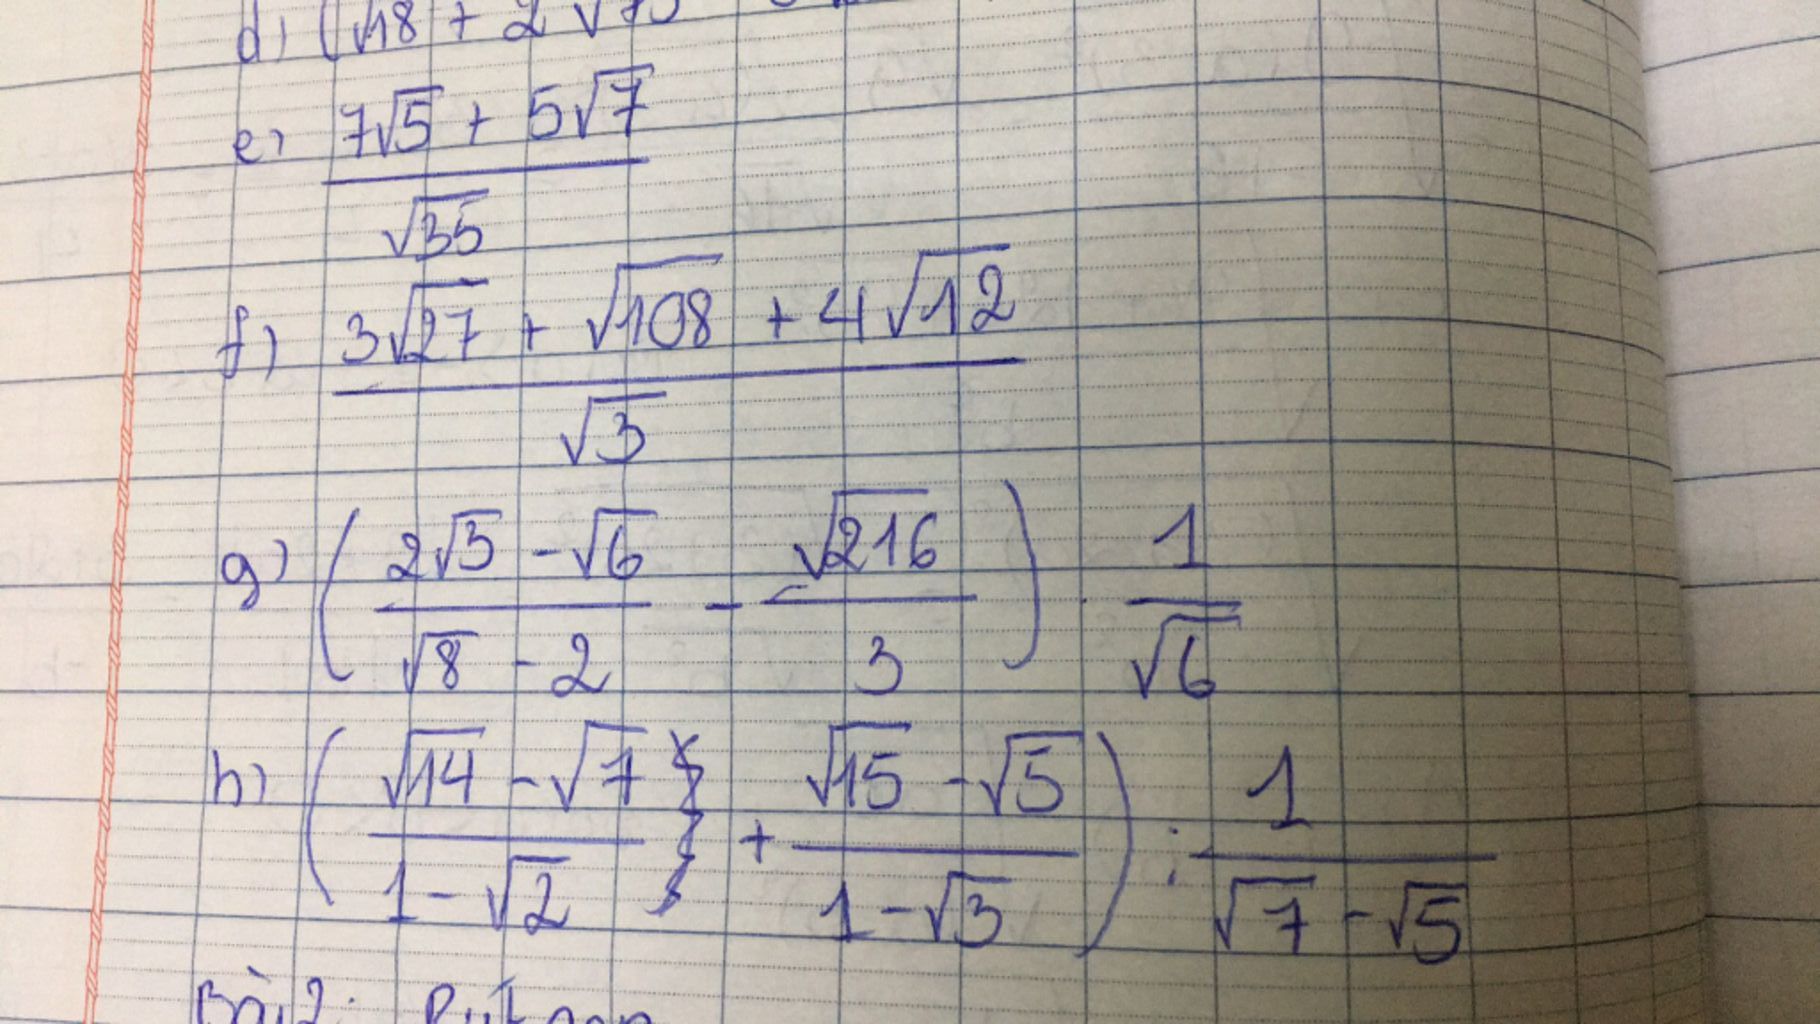 d) (√48 + 2√75
e) (7√5 + 5√7)/√35
f) (3√27 + √108 + 4√12)/√3
g) ((2√3 - √6)/(√8 - 2) - √216/3) . 1/√6
h) ((√14 - √7)/(1 - √2) + (√15 - √5)/(1 - √3)) : 1/(√7 - √5)
Bài2: Rút gọn